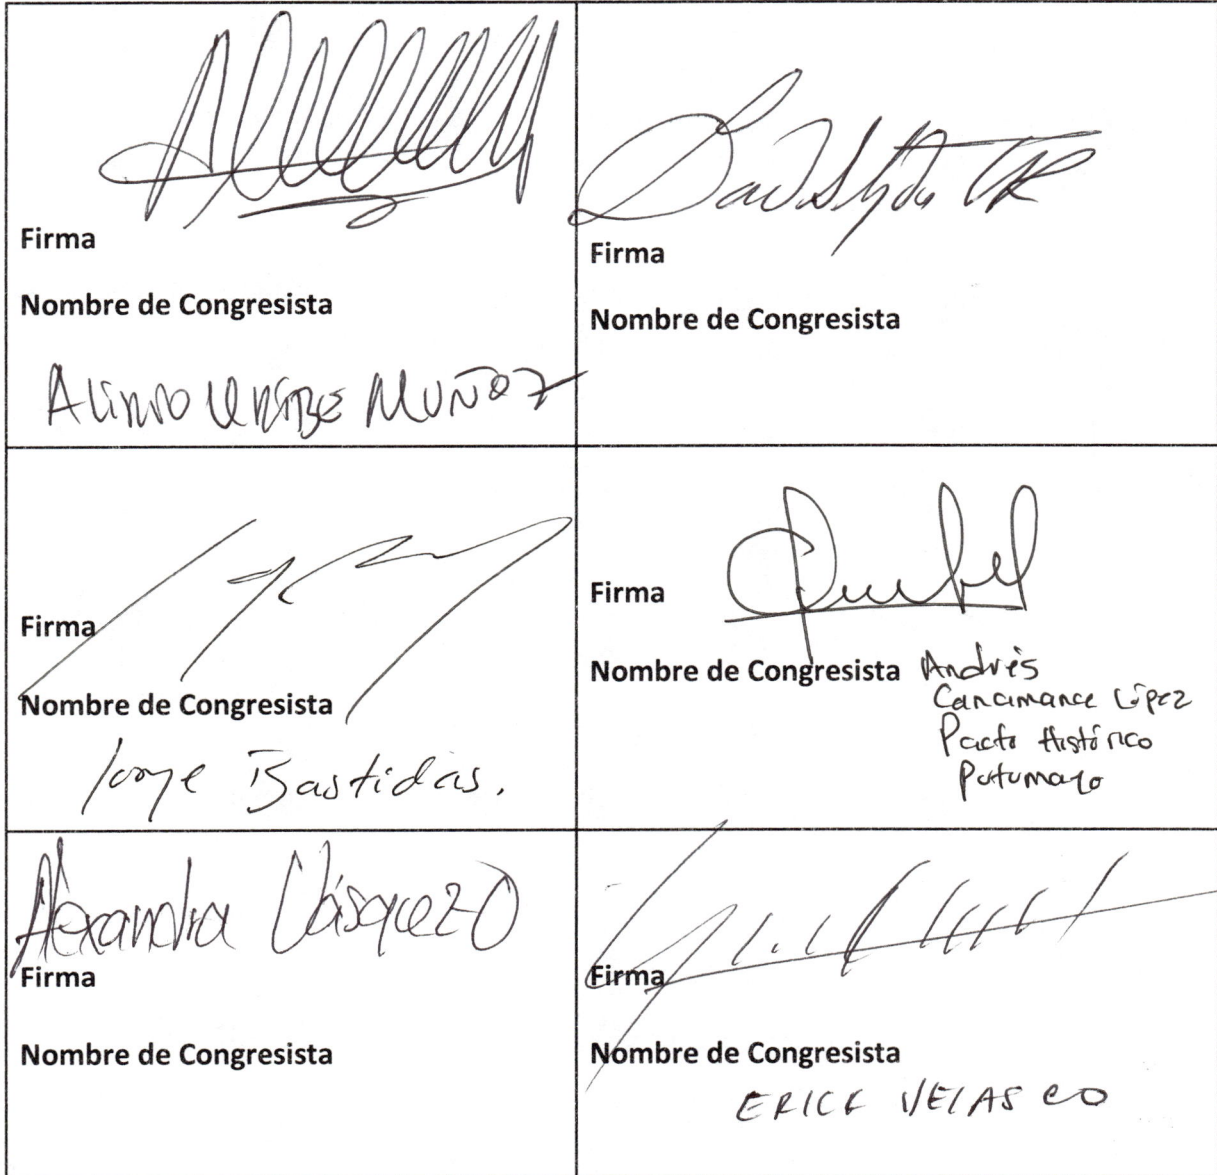 Firma
Nombre de Congresista
ALIRIO URIBE MUÑOZ
Firma
Nombre de Congresista
Firma
Nombre de Congresista
Jorge Bastidas.
Firma
Nombre de Congresista Andrés
Cancimance López
Pacto Histórico
Putumayo
Alexandra Vásquez O
Firma
Nombre de Congresista
Firma
Nombre de Congresista
ERICK VELASCO